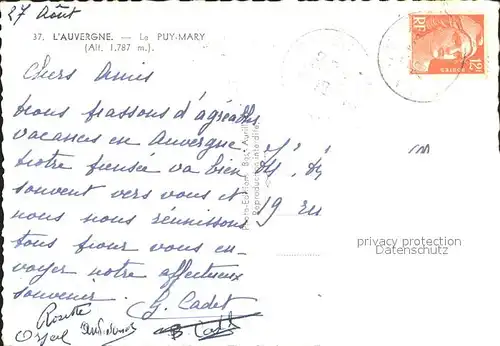 27 Août
37. L'AUVERGNE. — Le PUY-MARY
(Alt. 1.787 m.)
Chers Amis
nous passons d'agréables
vacances en Auvergne
Notre pensée va bien
souvent vers vous et
nous nous réunissons
tous pour vous en-
voyer notre affectueux
souvenir. G. Cadet
Rosette
RF
12F
POSTES
Reproduction interdite
privacy protection by
Datenschutz